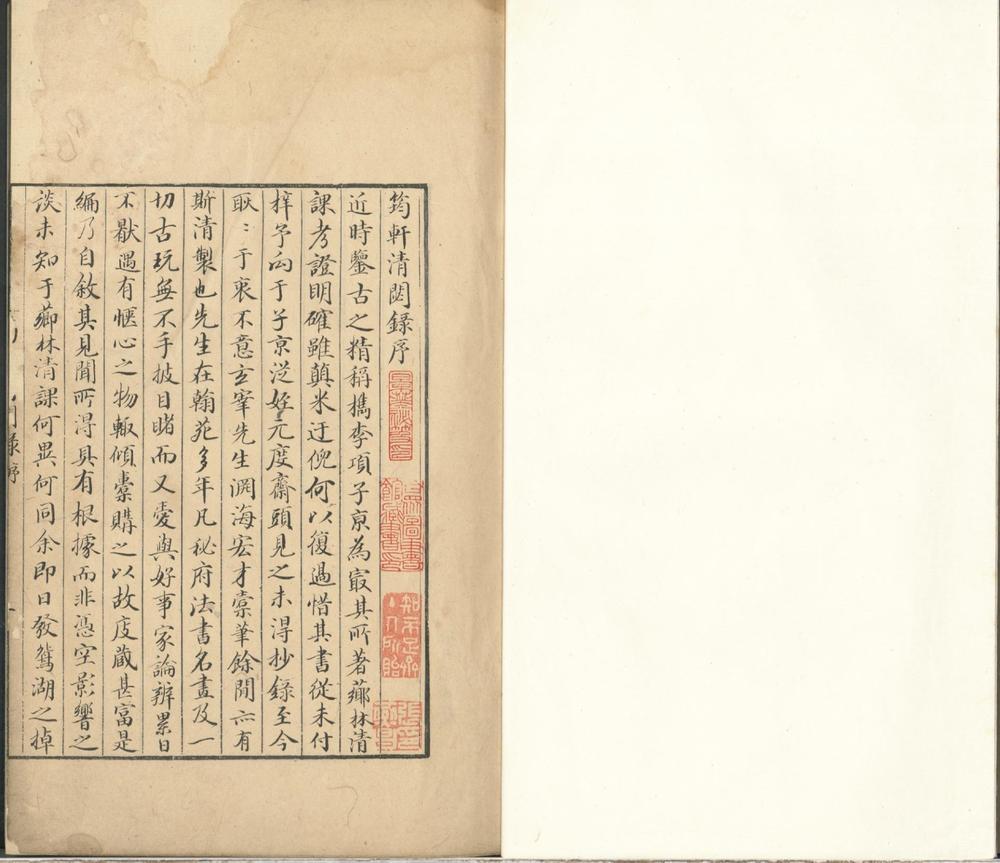 筠軒清閟錄序
近時鑒古之精稱檇李項子京為冣其所著薌林清
課考證明確雖蘋米迂倪何以復過惜其書從未付
梓予向于子京從姪元度齋頭見之未得抄錄至今
耿〻于衷不意玄宰先生淵海宏才橐筆餘閒亦有
斯清製也先生在翰苑多年凡秘府法書名畫及一
切古玩無不手披目睹而又愛與好事家論辨累日
不厭遇有愜心之物輙傾橐購之以故庋藏甚富是
編乃自敘其見聞所得具有根據而非憑空影響之
談未知于薌林清課何異何同余即日發鴛湖之掉
知不足齋